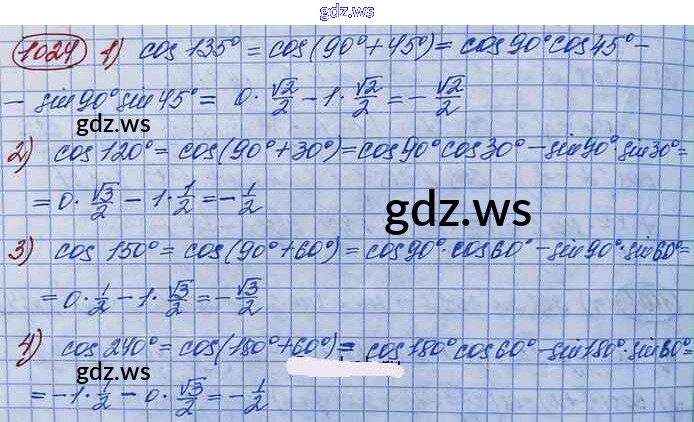 gdz.ws
1024 1) cos 135° = cos(90°+45°) = cos90°cos45° -
- sin90°sin45° = 0·√2/2 - 1·√2/2 = -√2/2
gdz.ws
2) cos120° = cos(90°+30°) = cos90°cos30° - sin90°·sin30° =
= 0·√3/2 - 1·1/2 = -1/2
gdz.ws
3) cos 150° = cos(90°+60°) = cos90°·cos60° - sin90°·sin60° =
= 0·1/2 - 1·√3/2 = -√3/2
4) cos240° = cos(180°+60°) = cos180°cos60° - sin180°·sin60° =
gdz.ws
= -1·1/2 - 0·√3/2 = -1/2